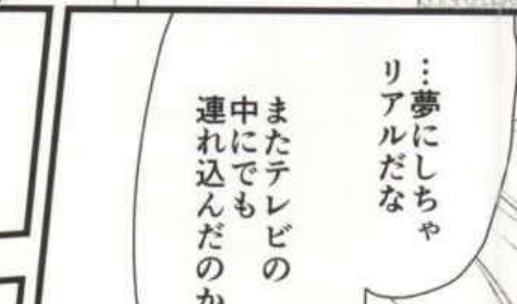 …夢にしちゃ
リアルだな
またテレビの
中にでも
連れ込んだのか